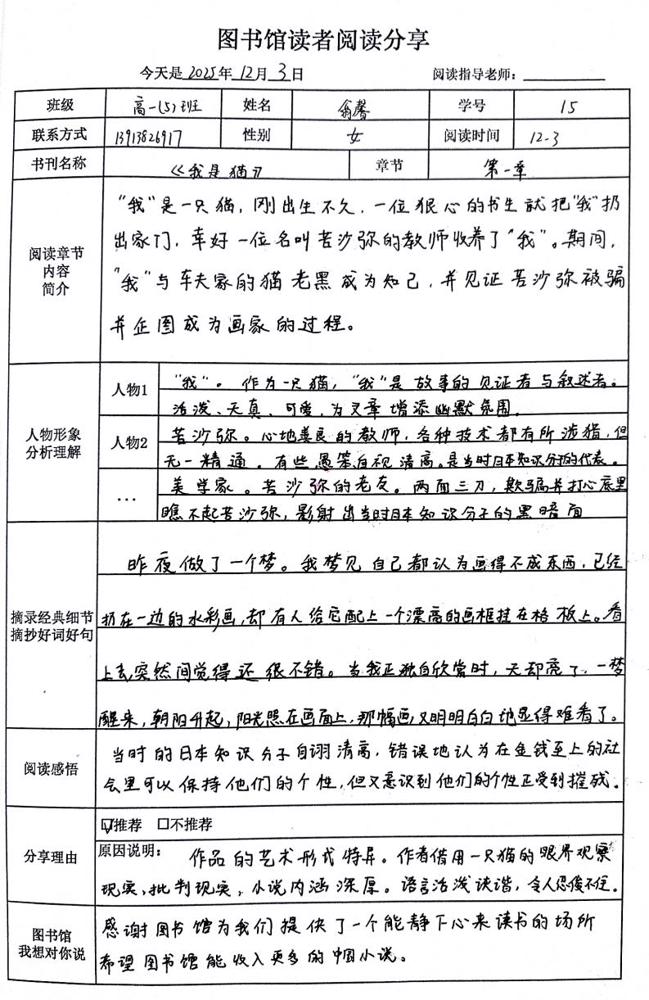 图书馆读者阅读分享
今天是 2025年 12月 3日 阅读指导老师：
班级 高一(5)班 姓名 翁馨 学号 15
联系方式 13913826917 性别 女 阅读时间 12-3
书刊名称 《我是猫》 章节 第一章
阅读章节
内容
简介
"我"是一只猫，刚出生不久，一位狠心的书生就把"我"扔
出家门，幸好一位名叫苦沙弥的教师收养了"我"。期间，
"我"与车夫家的猫老黑成为知己，并见证苦沙弥被骗
并企图成为画家的过程。
人物形象
分析理解
人物1 "我"。作为一只猫，"我"是故事的见证者与叙述者。
活泼、天真、可爱，为文章增添幽默氛围。
人物2 苦沙弥。心地善良的教师，各种技术都有所涉猎，但
无一精通。有些愚笨自视清高。是当时日本知识分子的代表。
… 美学家。苦沙弥的老友。两面三刀，欺骗并打心底里
瞧不起苦沙弥，影射出当时日本知识分子的黑暗面
摘录经典细节
摘抄好词好句
昨夜做了一个梦。我梦见自己都认为画得不成东西，已经
扔在一边的水彩画，却有人给它配上一个漂亮的画框挂在格板上。看
上去突然间觉得还很不错。当我正独自欣赏时，天却亮了，一梦
醒来，朝阳升起，阳光照在画面上，那幅画又明明白白地显得难看了。
阅读感悟
当时的日本知识分子自诩清高，错误地认为在金钱至上的社
会里可以保持他们的个性，但又意识到他们的个性正受到摧残。
分享理由
☑推荐 □不推荐
原因说明：作品的艺术形式特异。作者借用一只猫的眼界观察
现实，批判现实，小说内涵深厚。语言活泼诙谐，令人忍俊不住。
图书馆
我想对你说
感谢图书馆为我们提供了一个能静下心来读书的场所
希望图书馆能收入更多的中国小说。